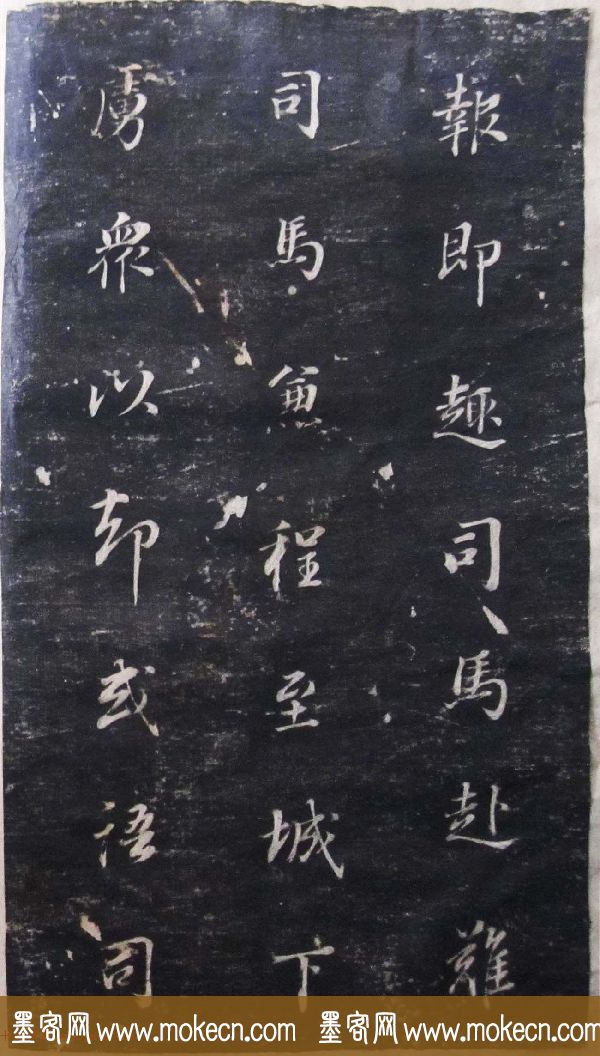 報即趣司馬赴難
司馬兼程至城下
虜衆以却或語司
墨客网 www.mokecn.com 墨客网 www.mokecn.com